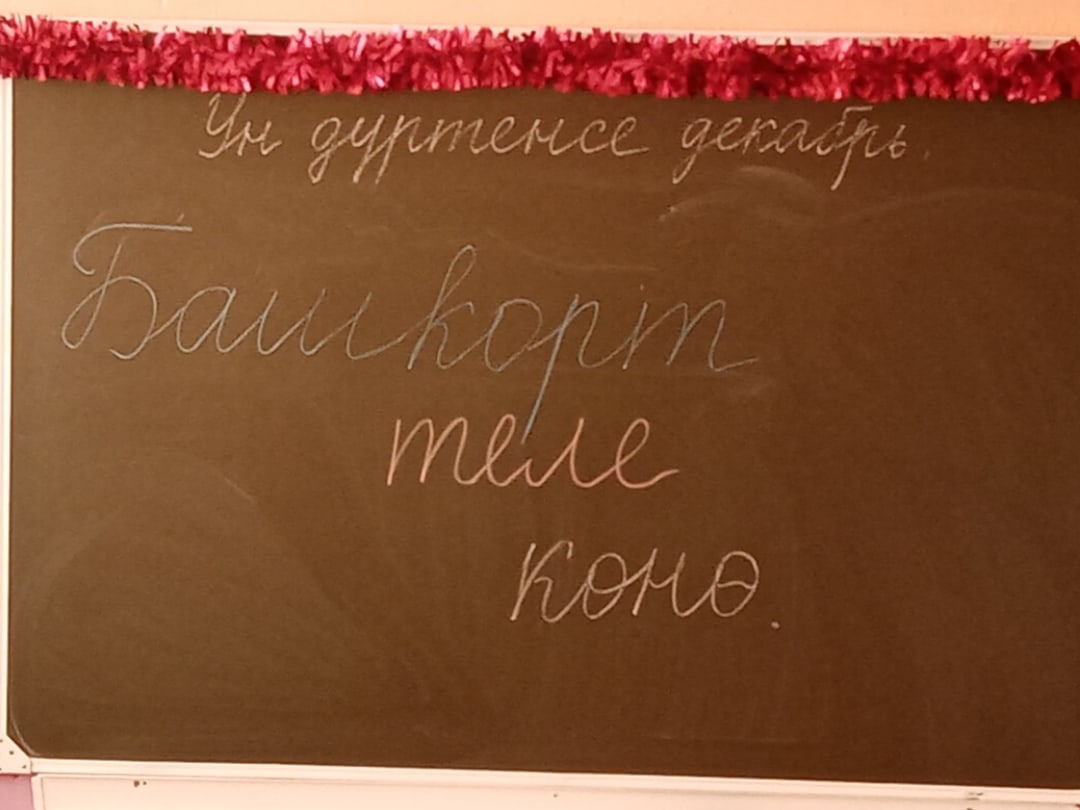 Ун дуртенсе декабрь.
Башҡорт
теле
көнө.